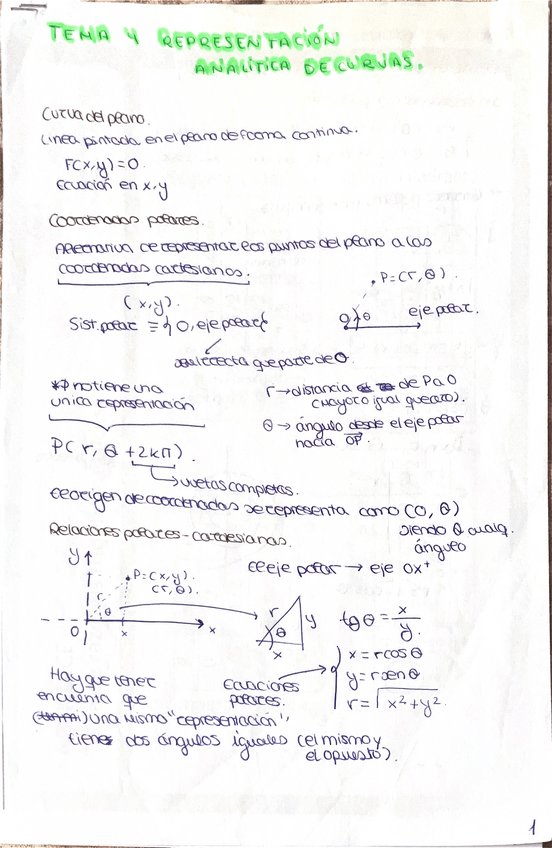 TEMA 4 REPRESENTACIÓN
ANALÍTICA DE CURVAS.
Curva del plano.
Línea pintada en el plano de forma continua.
F(x,y)=0.
Ecuación en x,y
Coordenadas polares.
Alternativa de representar los puntos del plano a las
coordenadas cartesianas.
P=(r, θ).
(x,y).
O θ eje polar.
Sist. polar ≡ { O, eje polar {
semirrecta que parte de O.
*P no tiene una
única representación
r → distancia de P a O
(mayor o igual que cero).
θ → ángulo desde el eje polar
hacia OP.
P(r, θ + 2kπ).
vueltas completas.
El origen de coordenadas se representa como (0, θ)
siendo θ cualq.
ángulo
Relaciones polares - cartesianas.
El eje polar → eje OX⁺
y
P=(x,y).
(r, θ).
r θ
O x x
r y θ x
tg θ = x/y.
Ecuaciones
polares.
x = r cos θ
y = r sen θ
r = √x²+y²
Hay que tener
en cuenta que
una misma "representación",
tiene dos ángulos iguales (el mismo y
el opuesto).
1